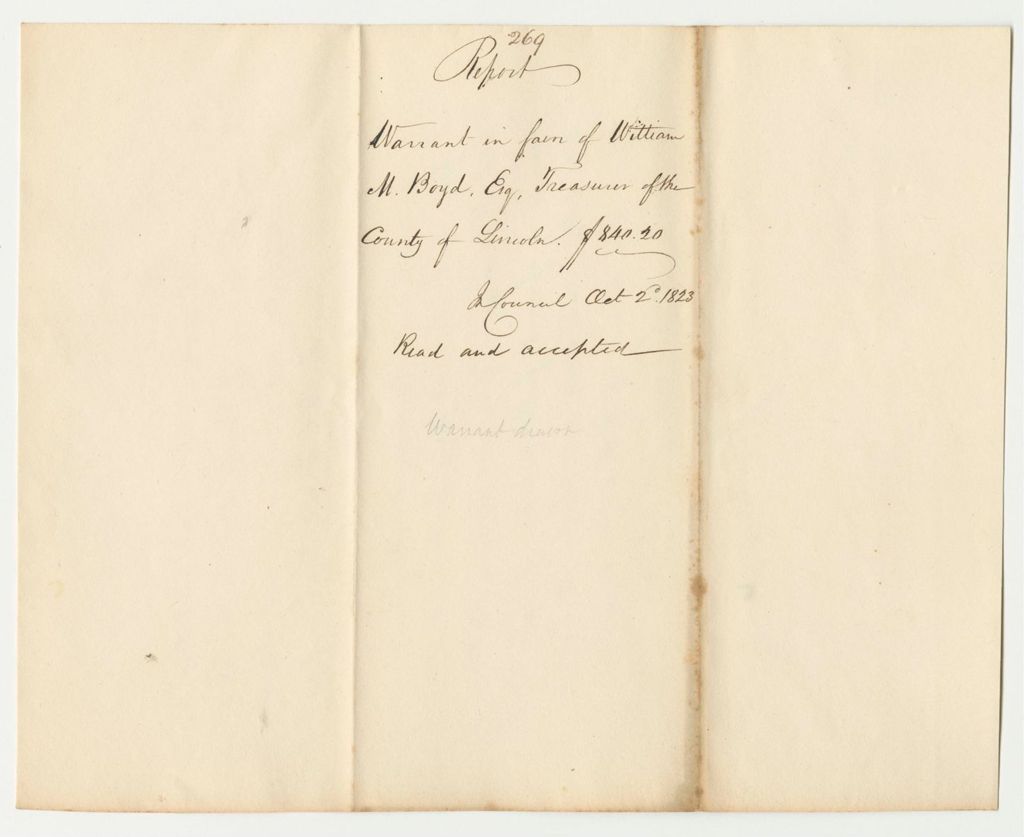 269
Report
Warrant in favr of William
M. Boyd, Esq, Treasurer of the
County of Lincoln. $840.20
In Council Oct 2d. 1823
Read and accepted
Warrant drawn